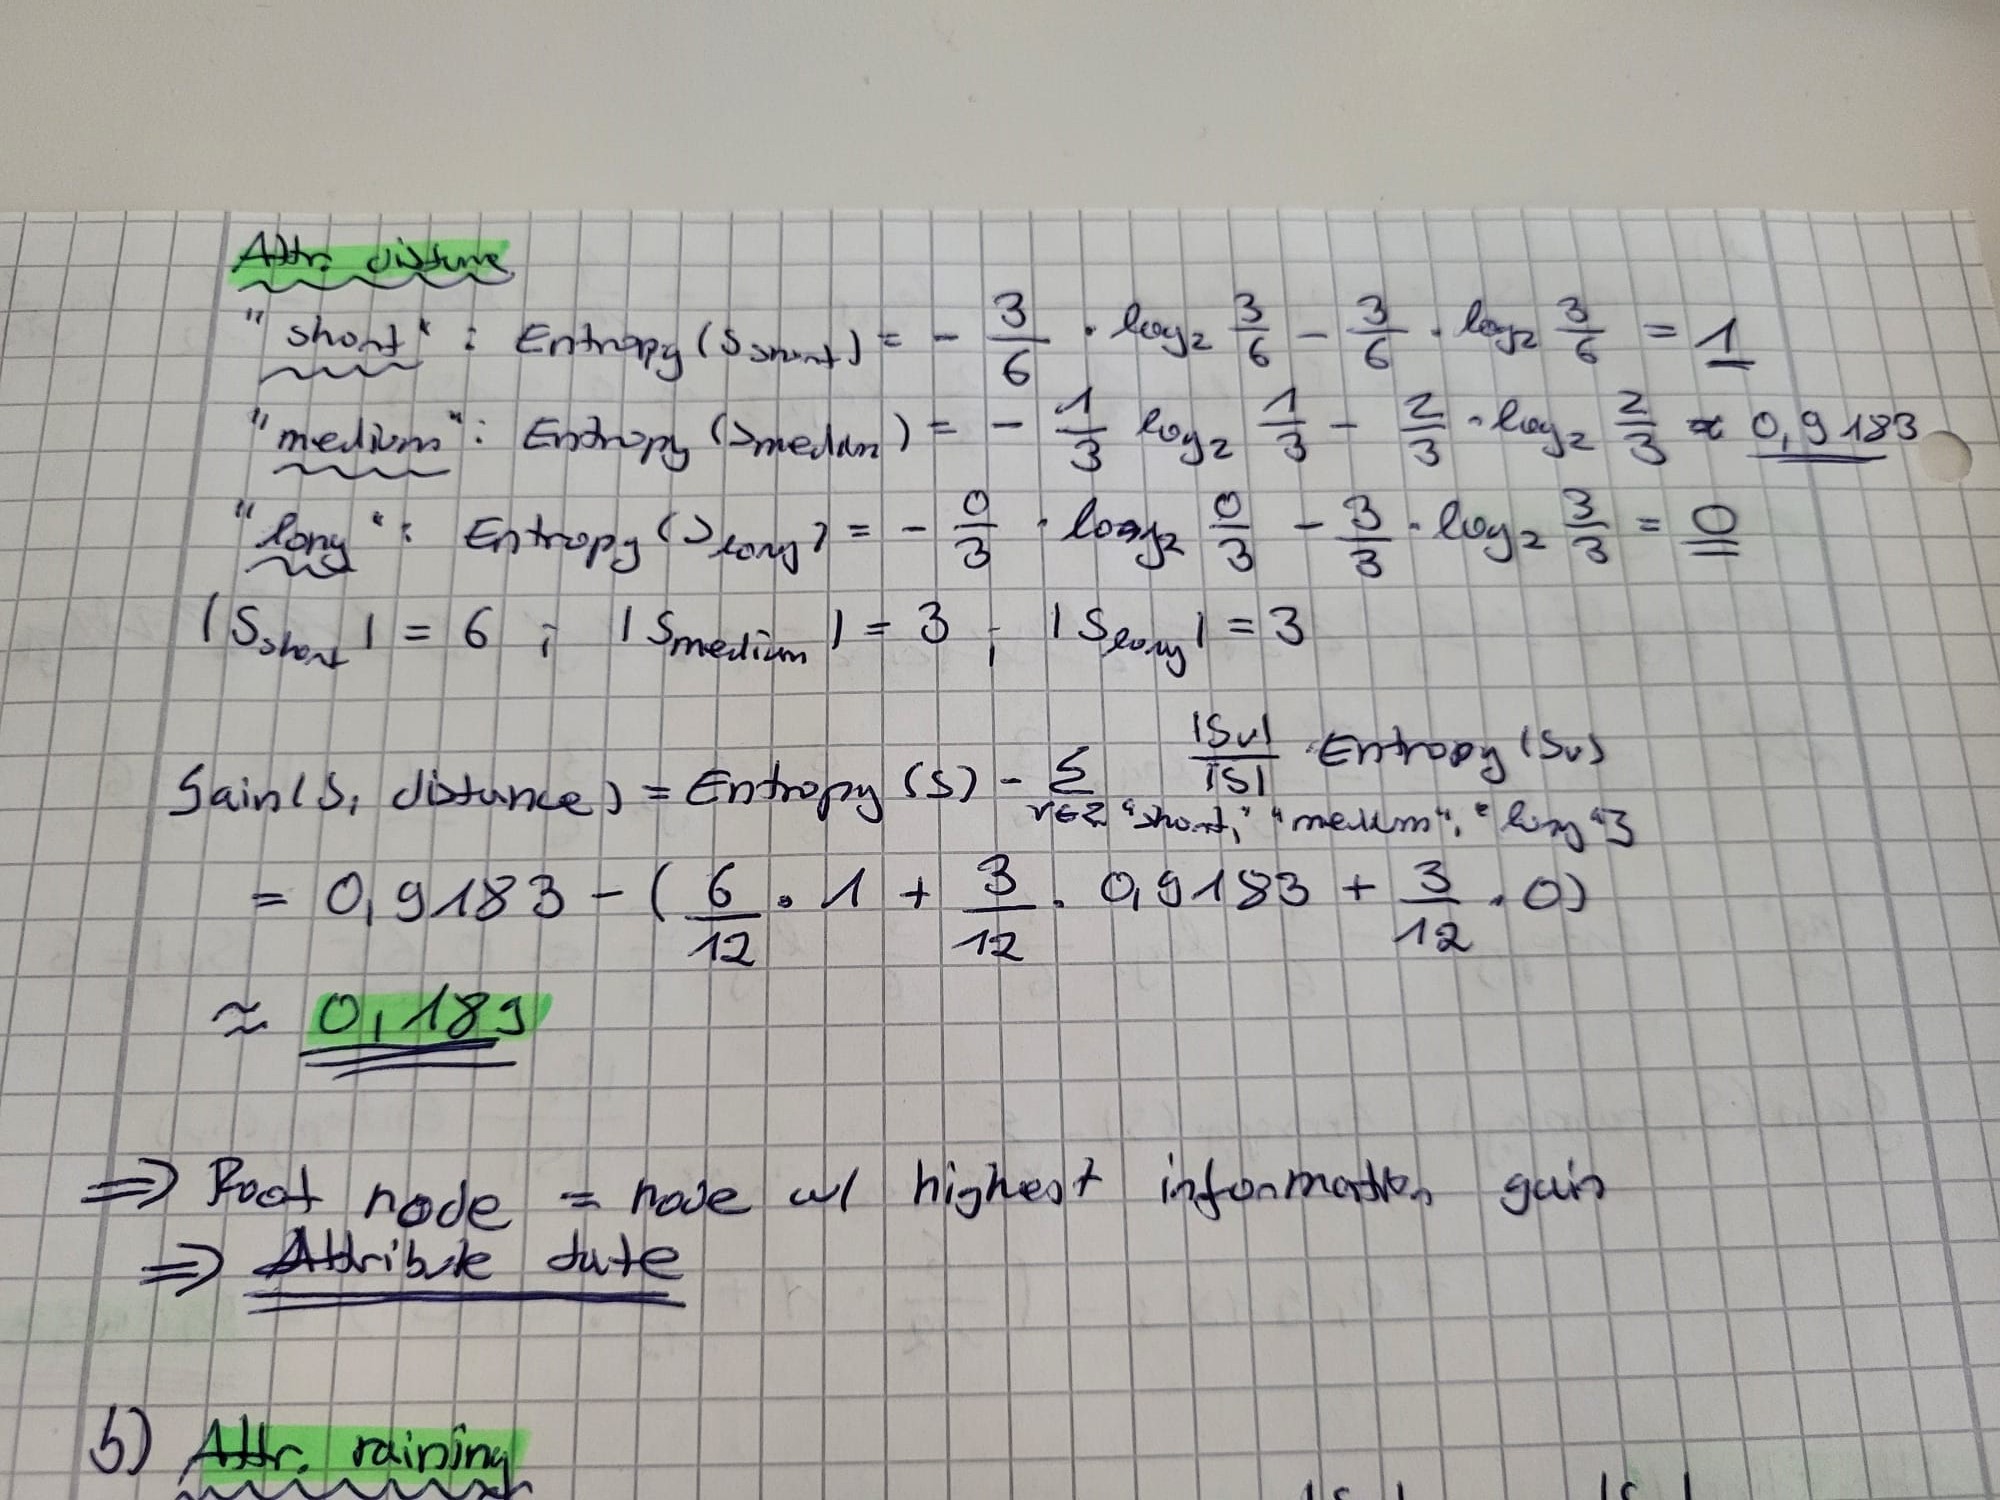 Attr. distance
"short": Entropy (S_short) = - 3/6 · log₂ 3/6 - 3/6 · log₂ 3/6 = 1
"medium": Entropy (S_medium) = - 1/3 log₂ 1/3 - 2/3 · log₂ 2/3 ≈ 0,9183
"long": Entropy (S_long) = - 0/3 · log₂ 0/3 - 3/3 · log₂ 3/3 = 0
|S_short| = 6 ; |S_medium| = 3 ; |S_long| = 3
Gain(S, distance) = Entropy (S) - Σ_v∈{"short", "medium", "long"} |Sv|/|S| · Entropy (Sv)
= 0,9183 - ( 6/12 · 1 + 3/12 · 0,9183 + 3/12 · 0)
≈ 0,189
⇒ Root node = node w/ highest information gain
⇒ Attribute date
b) Attr. raining